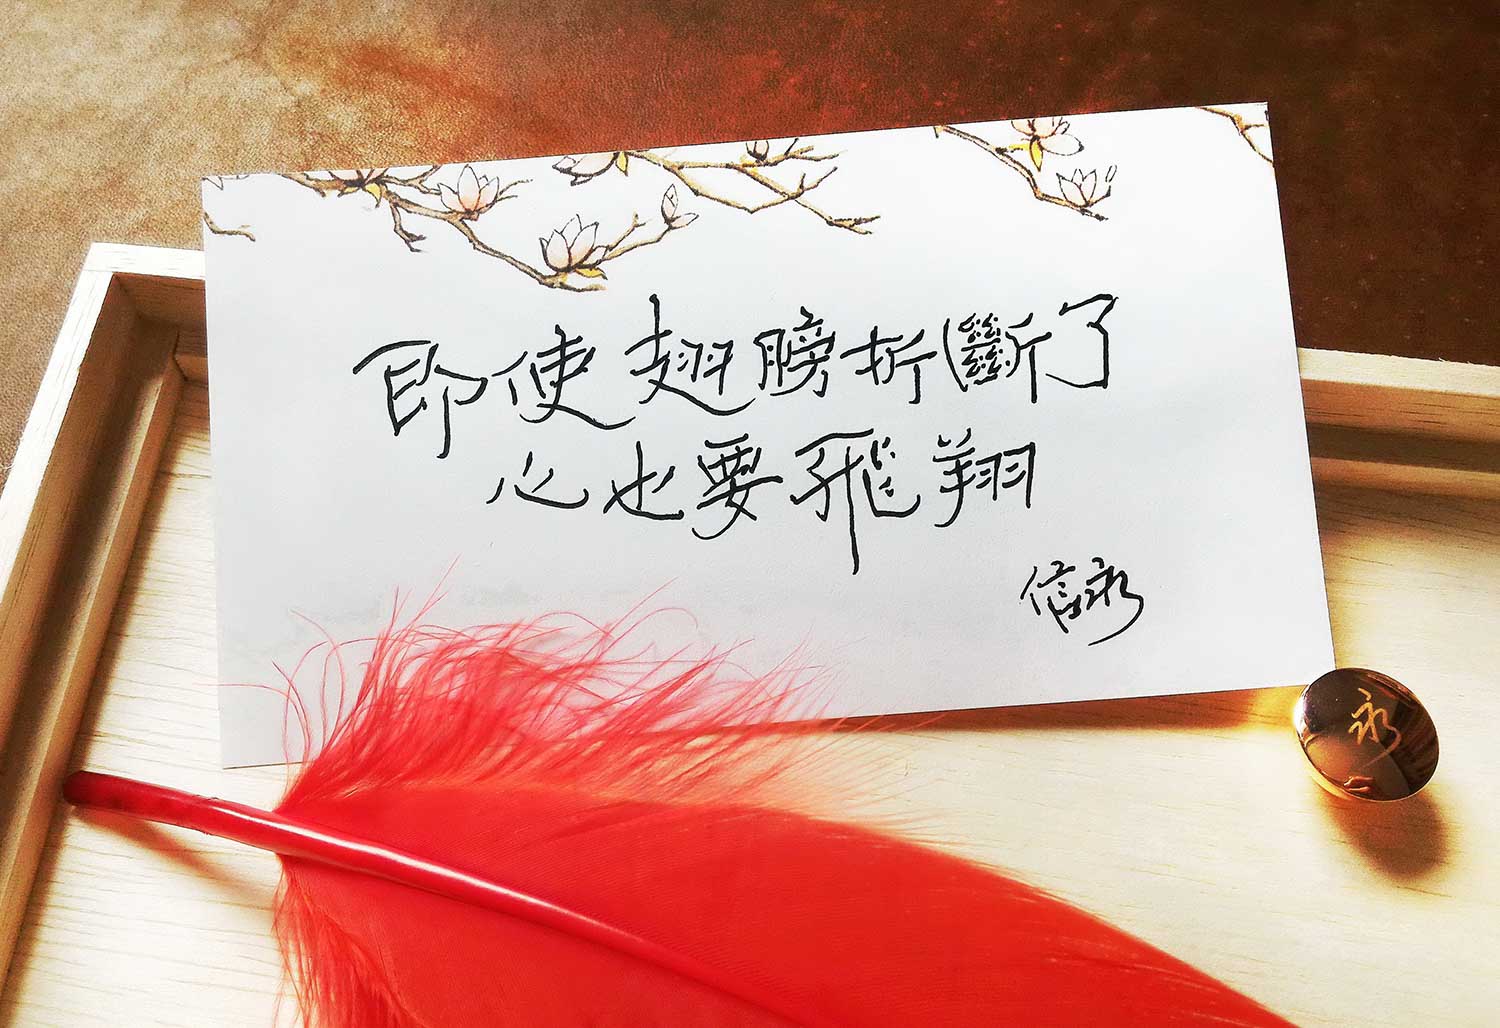 即使翅膀折斷了
心也要飛翔
信永
永